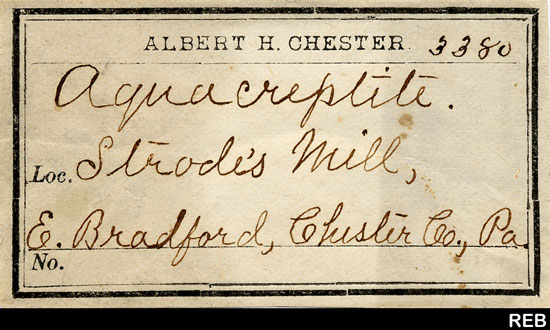 ALBERT H. CHESTER. 3380
Aquacreptite.
Loc. Strode's Mill,
E. Bradford, Chester Co., Pa.
No.
REB